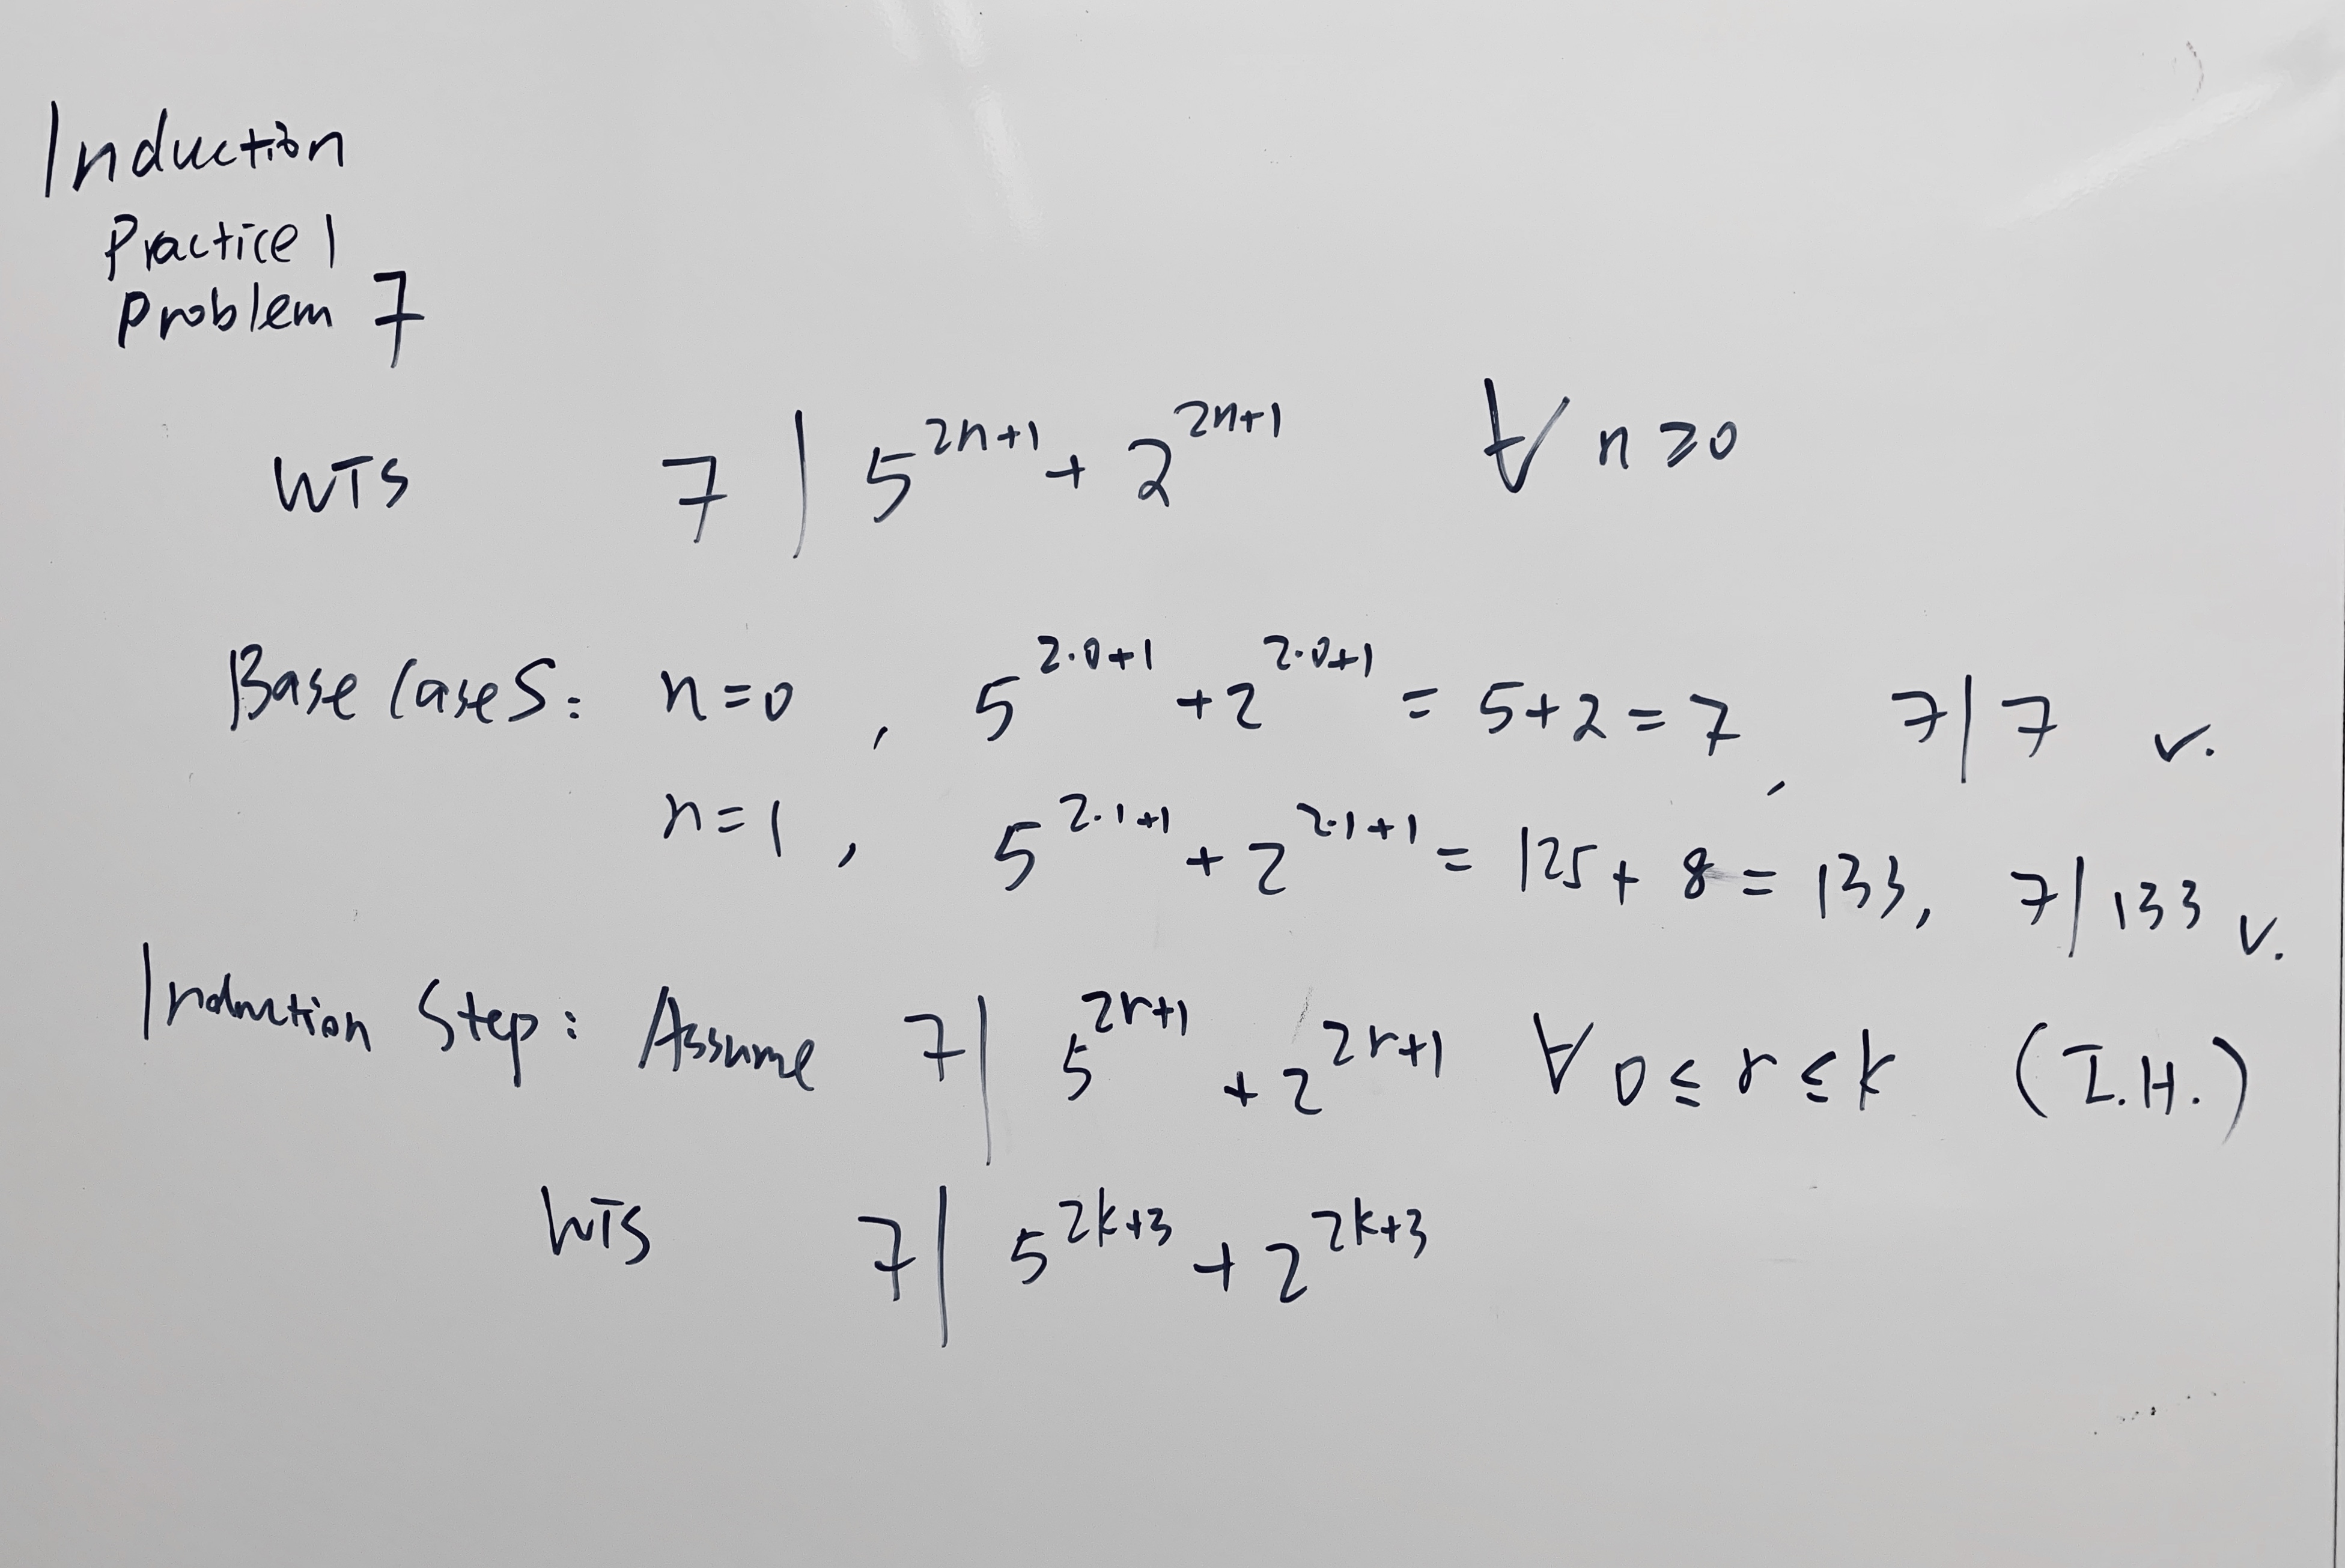 Induction
Practice 1
Problem 7
WTS 7 | 5^{2n+1} + 2^{2n+1} ∀ n ≥ 0
Base Cases: n=0 , 5^{2·0+1} + 2^{2·0+1} = 5+2 = 7, 7|7 ✓.
n=1 , 5^{2·1+1} + 2^{2·1+1} = 125 + 8 = 133, 7|133 ✓.
Induction Step: Assume 7| 5^{2r+1} + 2^{2r+1} ∀ 0 ≤ r ≤ k (I.H.)
WTS 7| 5^{2k+3} + 2^{2k+3}